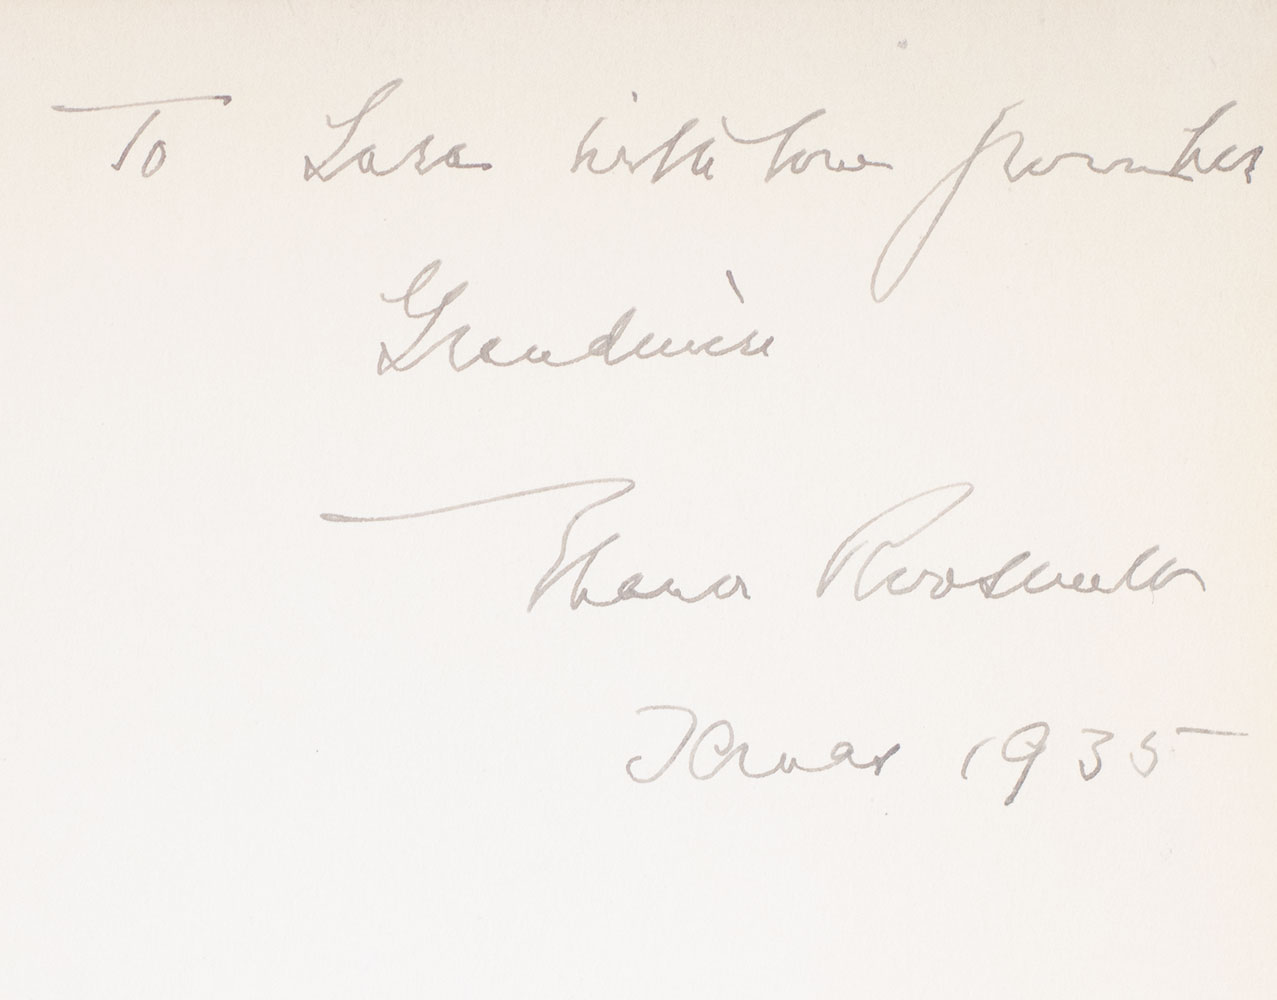 To Sara with love from her
Grandmère
Eleanor Roosevelt
Xmas 1935